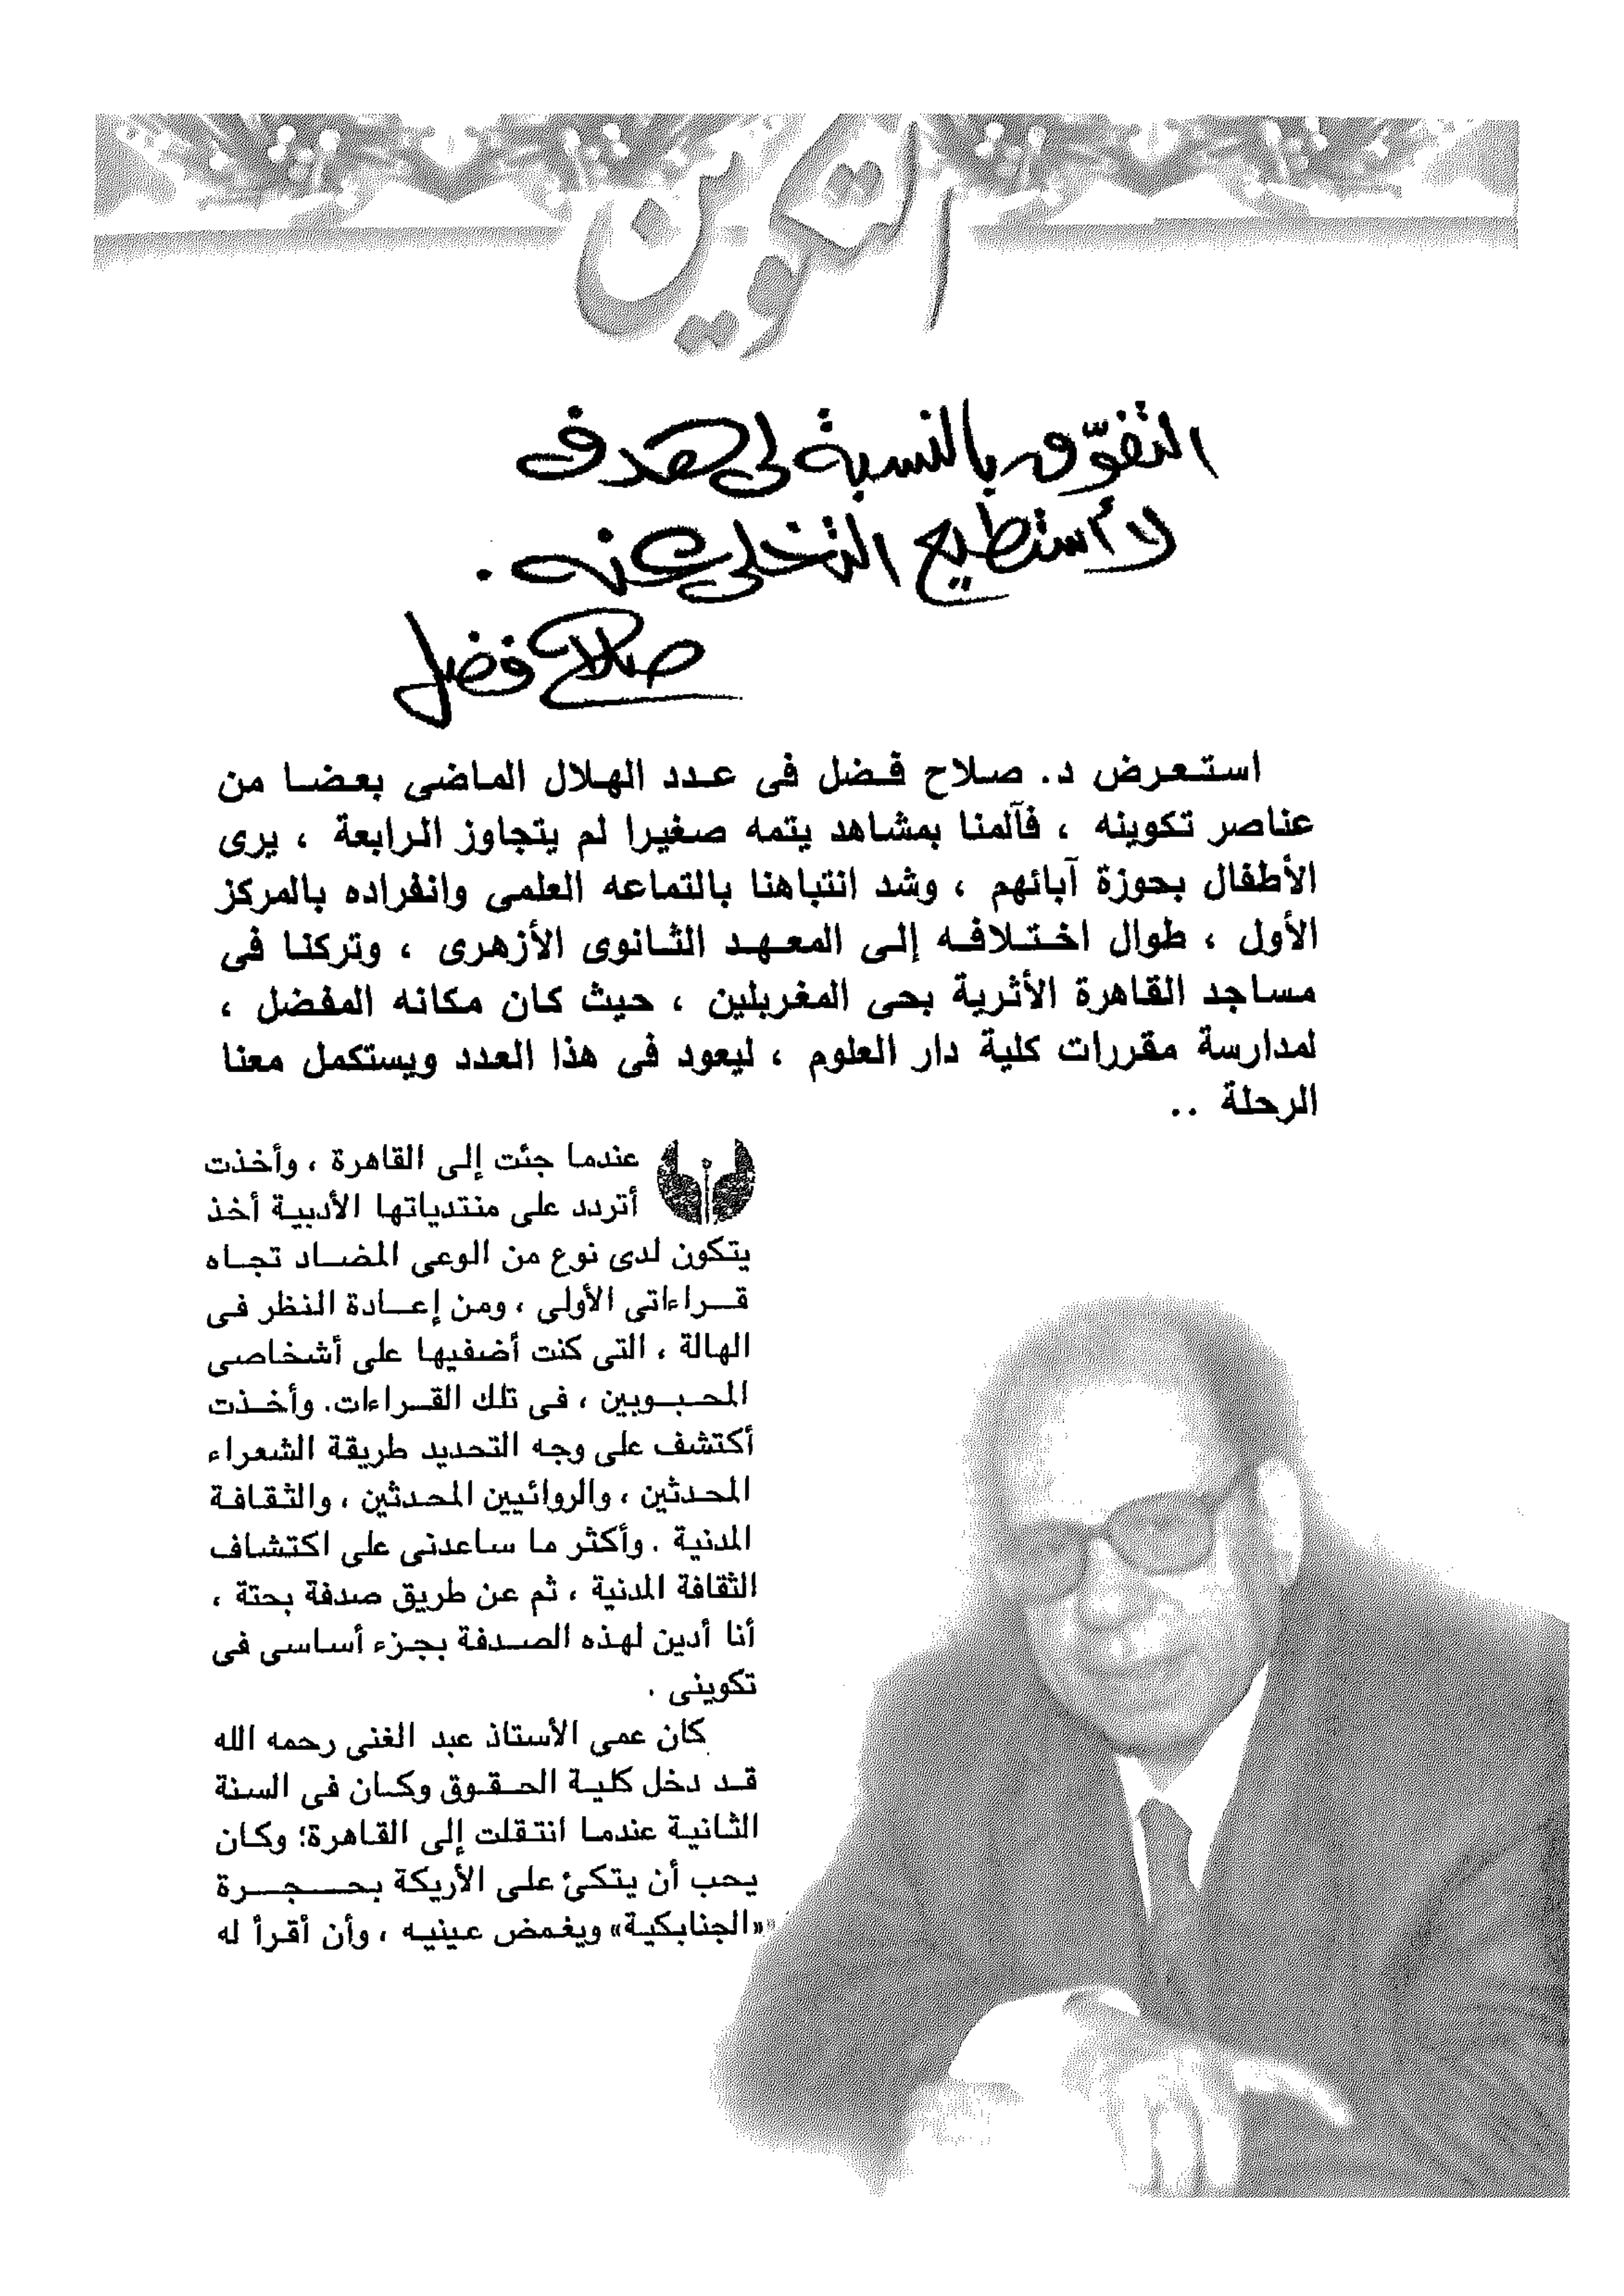 التكوين
التفوّق بالنسبة لى هدف
لا أستطيع التخلى عنه .
صلاح فضل
استعرض د. صلاح فضل فى عدد الهلال الماضى بعضا من
عناصر تكوينه ، فآلمنا بمشاهد يتمه صغيرا لم يتجاوز الرابعة ، يرى
الأطفال بحوزة آبائهم ، وشد انتباهنا بالتماعه العلمى وانفراده بالمركز
الأول ، طوال اختلافه إلى المعهد الثانوى الأزهرى ، وتركنا فى
مساجد القاهرة الأثرية بحى المغربلين ، حيث كان مكانه المفضل ،
لمدارسة مقررات كلية دار العلوم ، ليعود فى هذا العدد ويستكمل معنا
الرحلة ..
عندما جئت إلى القاهرة ، وأخذت
أتردد على منتدياتها الأدبية أخذ
يتكون لدى نوع من الوعى المضاد تجاه
قراءاتى الأولى ، ومن إعادة النظر فى
الهالة ، التى كنت أضفيها على أشخاصى
المحبوبين ، فى تلك القراءات. وأخذت
أكتشف على وجه التحديد طريقة الشعراء
المحدثين ، والروائيين المحدثين ، والثقافة
المدنية . وأكثر ما ساعدنى على اكتشاف
الثقافة المدنية ، ثم عن طريق صدفة بحتة ،
أنا أدين لهذه الصدفة بجزء أساسى فى
تكوينى .
كان عمى الأستاذ عبد الغنى رحمه الله
قد دخل كلية الحقوق وكان فى السنة
الثانية عندما انتقلت إلى القاهرة؛ وكان
يحب أن يتكئ على الأريكة بحجرة
«الجنابكية» ويغمض عينيه ، وأن أقرأ له